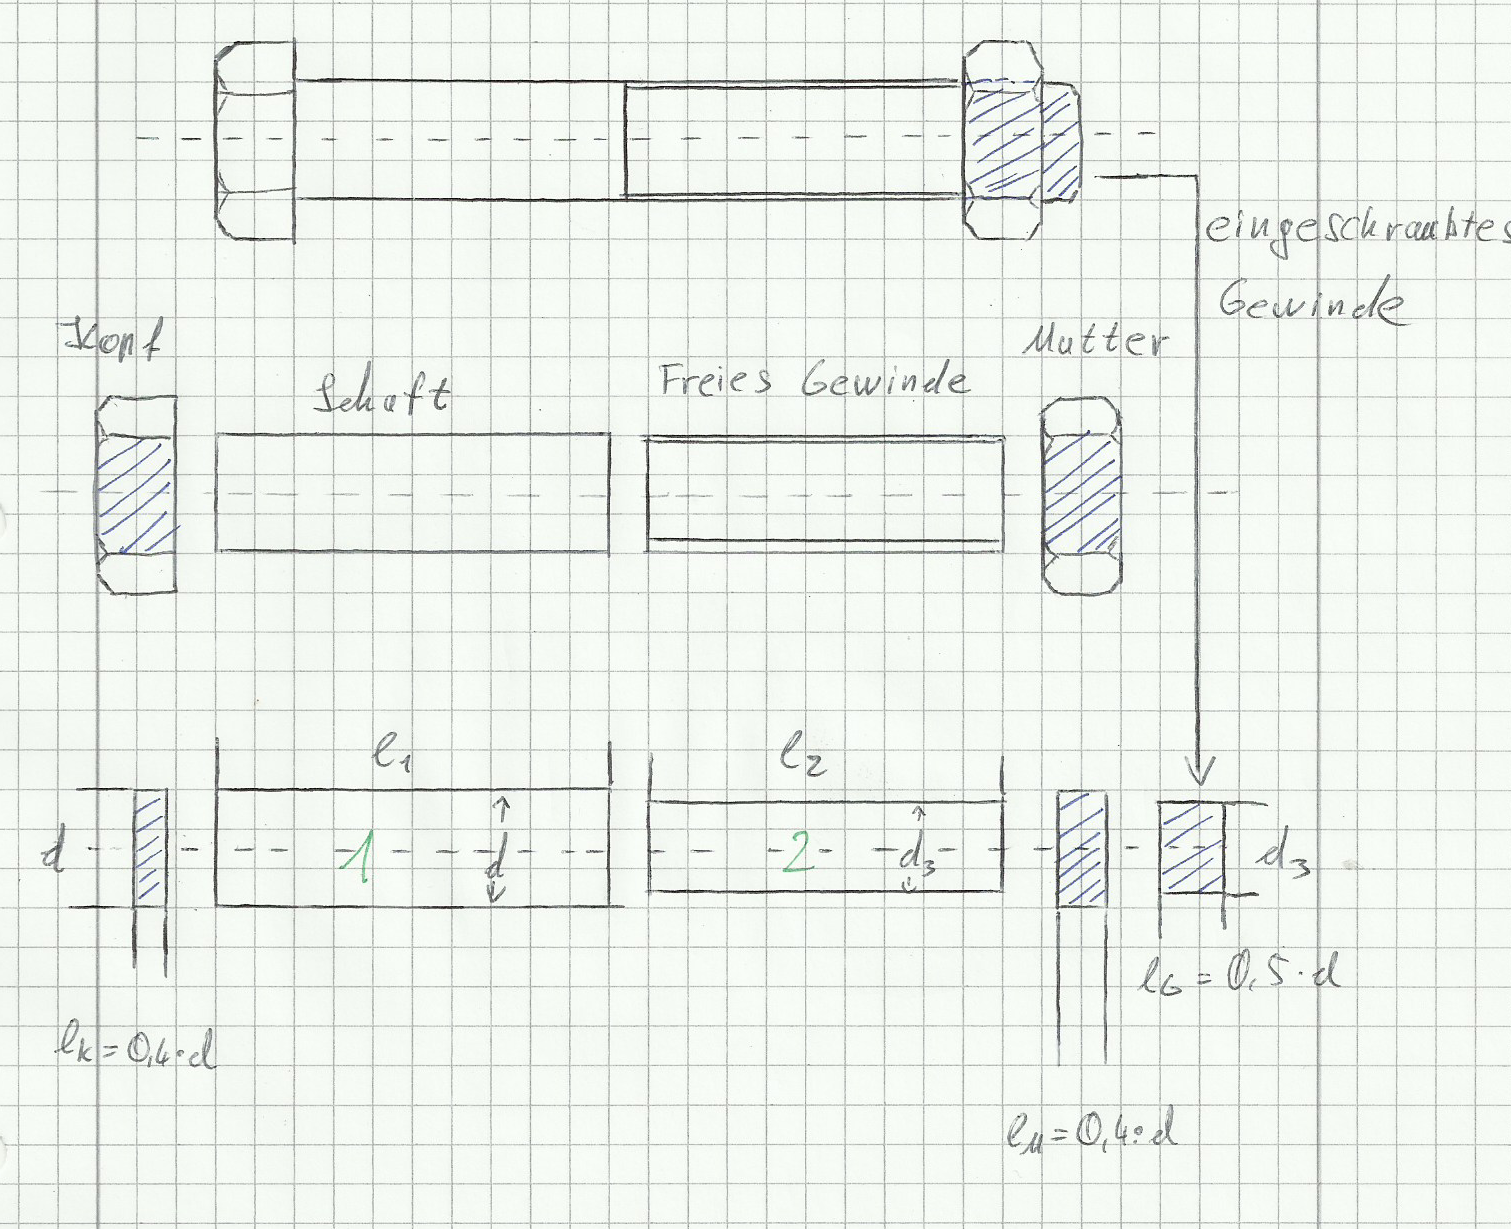 eingeschraubtes
Gewinde
Kopf
Schaft
Freies Gewinde
Mutter
l₁
l₂
d
1
d
2
d₃
d₃
lG = 0,5·d
lK = 0,4·d
lM = 0,4·d